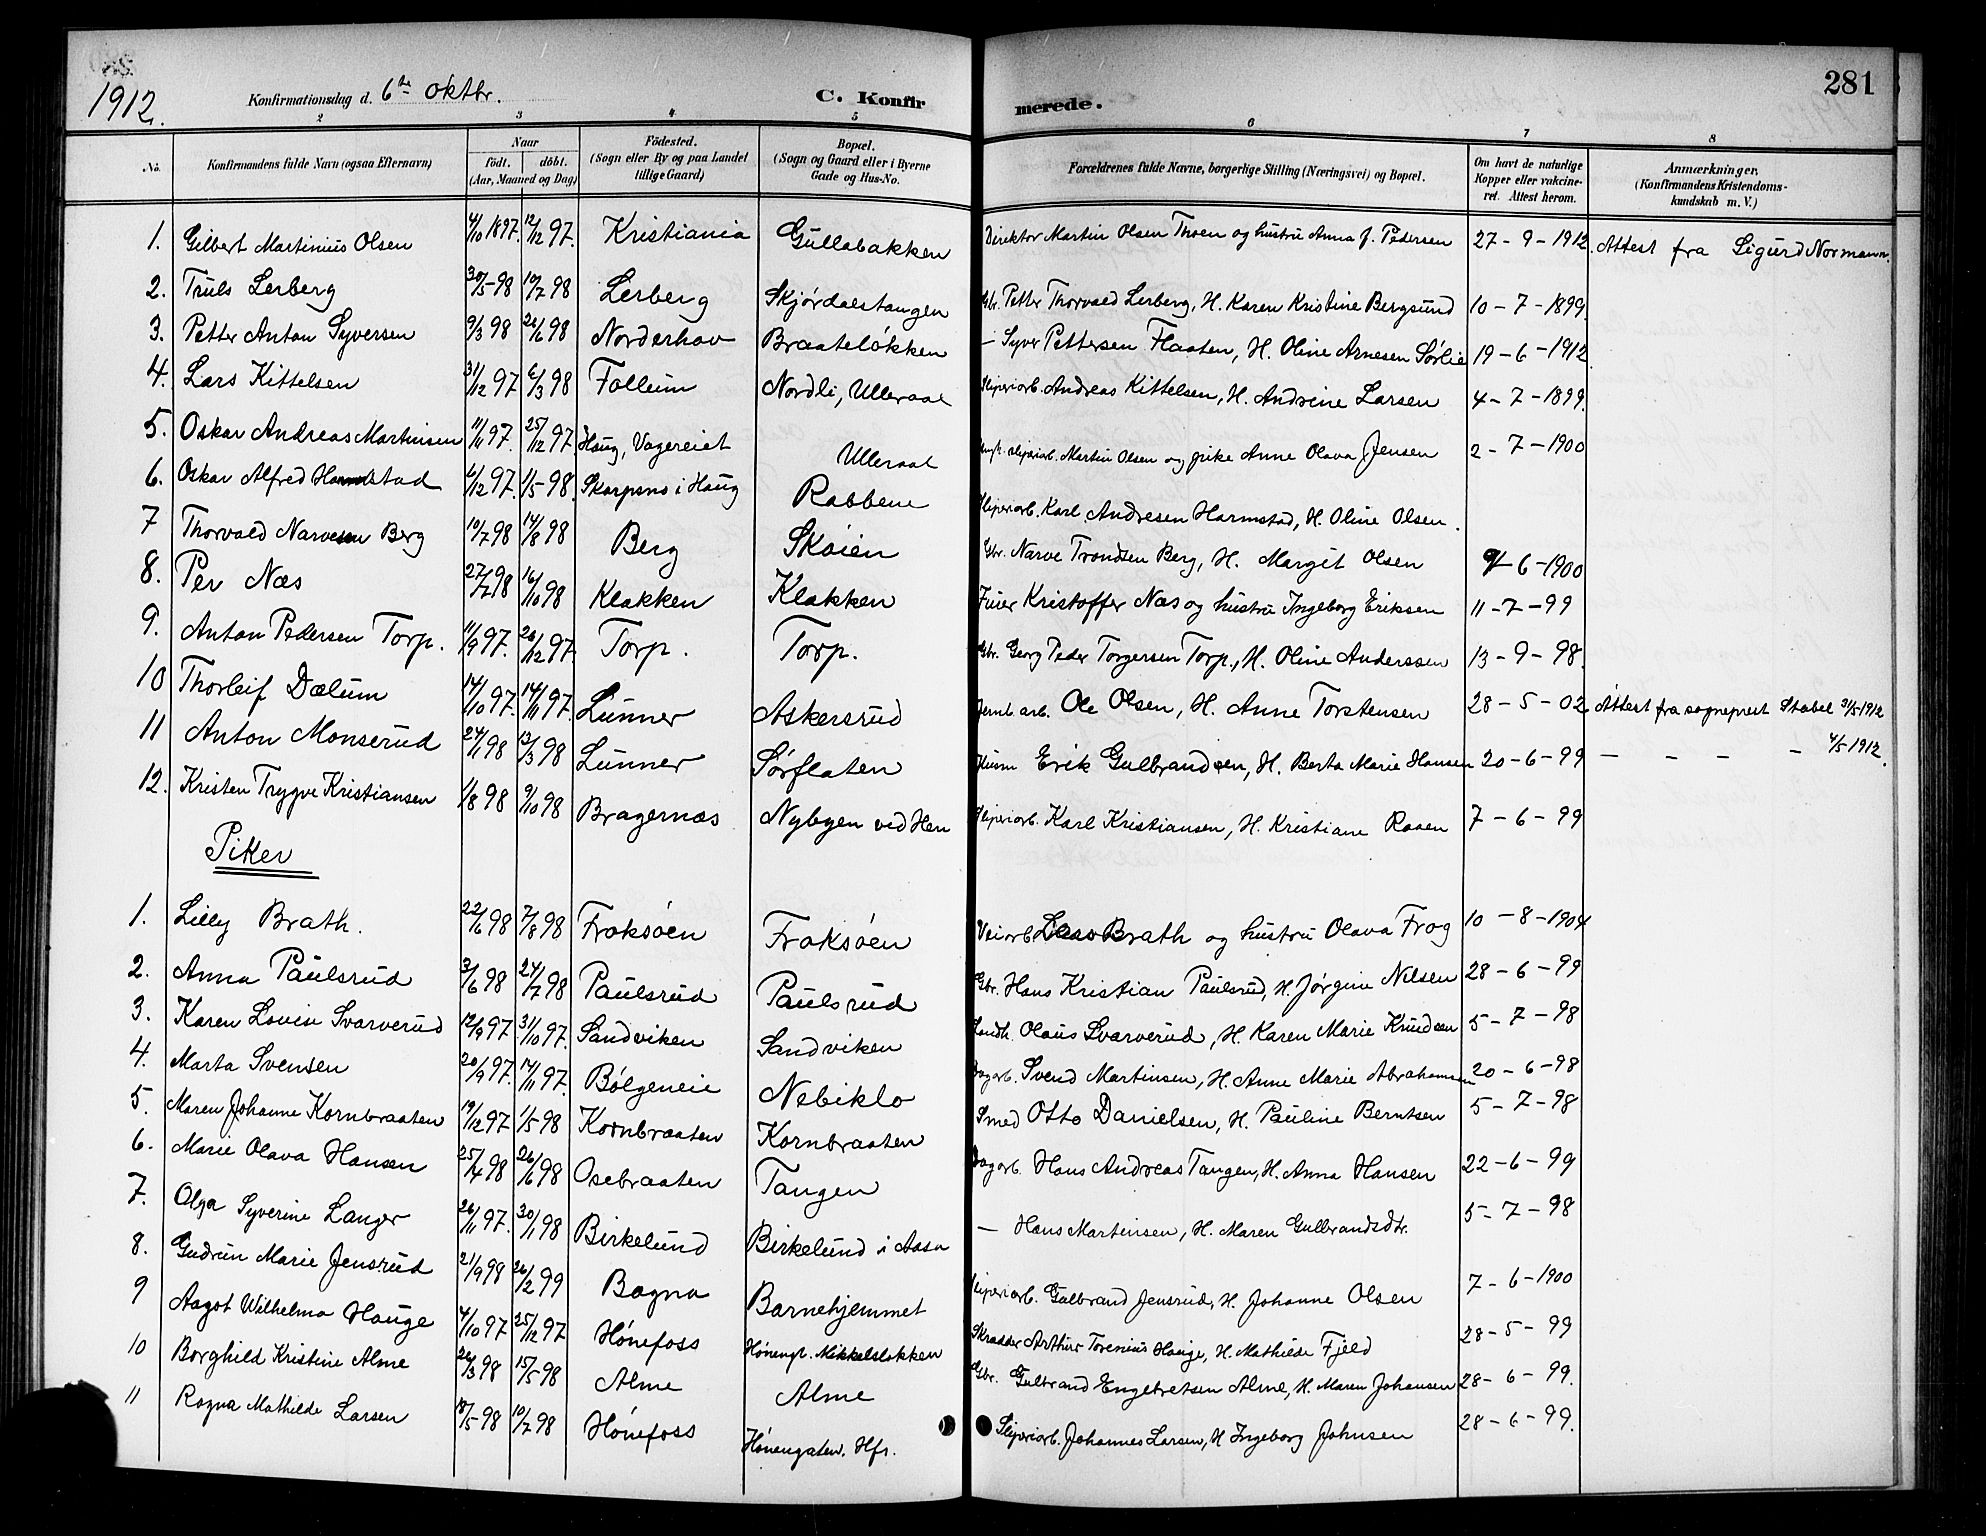 1912.
Konfirmationsdag d. 6te oktbr.
C. Konfirmerede.
281
2 3 4 5 6 7 8
No.
Konfirmandens fulde Navn (ogsaa Efternavn)
Naar
født. døbt.
(Aar, Maaned og Dag)
Födested.
(Sogn eller By og paa Landet
tillige Gaard)
Bopæl.
(Sogn og Gaard eller i Byerne
Gade og Hus-No.
Forældrenes fulde Navne, borgerlige Stilling (Næringsvei) og Bopæl.
Om havt de naturlige
Kopper eller vakcine-
ret. Attest herom.
Anmærkninger.
(Konfirmandens Kristendoms-
kundskab m. V.)
1. Gilbert Martinius Olsen 4/10 1897. 12/12 97. Kristiania Gullabakken Direktør Martin Olsen Thoen og hustru Anna J. Pedersen 27-9-1912. Attest fra Sigurd Normann.
2. Truls Lerberg 30/5-98 10/7 98 Lerberg Skjørdalstangen Gbr. Petter Thorvald Lerberg, H. Karen Kristine Bergsund 10-7-1899.
3. Petter Anton Syversen 9/3 98 26/6 98 Norderhov Braateløkken – Syver Pettersen Flaaten, H. Oline Arnesen Sørlie 19-6-1912.
4. Lars Kittelsen 31/12 97 6/3 98 Follum Nordli, Ulleraal Sliperiarb. Andreas Kittelsen, H. Andrine Larsen 4-7-1899.
5. Oskar Andreas Martinsen 11/11 97. 25/12 97. Haug, Vagereiet Ulleraal Ungk. sliperiarb. Martin Olsen og pike Anne Olava Jensen 2-7-1900
6. Oskar Alfred Harmstad 6/12 97. 1/5-98. Skarpsno i Haug Rabbene Sliperiarb. Karl Andresen Harmstad, H. Oline Olsen.
7 Thorvald Narvesen Berg 10/7 98 14/8 98 Berg Skøien Gbr. Narve Trondsen Berg, H. Margit Olsen 9-6-1900
8. Per Næs 27/7 98 16/10 98 Klækken Klækken Fuier Kristoffer Næs og hustru Ingeborg Eriksen 11-7-99
9. Anton Pedersen Torp. 11/9 97. 26/12 97. Torp. Torp. Gbr. Georg Peder Torgersen Torp, H. Oline Anderssen 13-9-98.
10 Thorleif Dælum 14/10 97. 14/11 97. Lunner Askersrud Jernb. arb. Ole Olsen, H. Anne Torstensen 28-5-02 Attest fra sogneprest Stabel 31/5-1912
11 Anton Monserud 24/1 98 13/3 98 Lunner Sørflaten Husm Erik Gulbrandsen, H. Berta Marie Hansen 20-6-99 – – – – 4/5-1912.
12. Kristen Trygve Kristiansen 1/8 98 9/10 98 Bragernæs Nybyen ved Hen Sliperiarb. Karl Kristiansen, H. Kristiane Raaen 7-6-99
Piker
1. Lilly Brath. 22/6 98 7/8 98 Froksøen Froksøen Veiarb. Lars Brath og hustru Olava Frog 10-8-1904
2. Anna Paulsrud 3/6 98 24/7 98 Paulsrud Paulsrud Gbr. Hans Kristian Paulsrud, H. Jørgine Nilsen 28-6-99
3. Karen Lovise Svarverud 12/9 97 31/10 97. Sandviken Sandviken Landh. Olaus Svarverud, H. Karen Marie Knudsen 5-7-98
4. Marta Svensen 20/9 97. 14/11 97. Bølgeneie Nebiklo Dagarb. Svend Martinsen, H. Anne Marie Abrahamsen 20-6-98
5. Maren Johanne Kornbraaten 19/12 97 1/5-98 Kornbraaten Kornbraaten Smed Otto Danielsen, H. Pauline Berntsen 5-7-98
6. Marie Olava Hansen 25/4 98 26/6 98 Osebraaten Tangen Dagarb. Hans Andreas Tangen, H. Anna Hansen 22-6-99
7. Olga Syverine Langer 26/11 97. 30/1 98 Birkelund Birkelund i Aasa – Hans Martinsen, H. Maren Gulbrandsdtr. 5-7-98
8. Gudrun Marie Jensrud 21/9 98 26/2 99 Bagna Barnehjemmet Sliperiarb. Gulbrand Jensrud, H. Johanne Olsen 7-6-1900
9 Aagot Wilhelma Hauge 4/10 97 25/12 97 Hønefoss Hønengt. Mikkelsløkken Skrædder Arthur Torenius Hauge, H. Mathilde Fjeld 28-5-99
10 Borghild Kristine Alme 26/3 98 15/5-98 Alme Alme Gbr. Gulbrand Engebretsen Alme, H. Maren Johansen 28-6-99.
11 Ragna Mathilde Larsen 18/5-98 10/7 98 Hønefoss Hønengaten. Hfs. Sliperiarb. Johannes Larsen, H Ingeborg Johnsen 28-6-99.